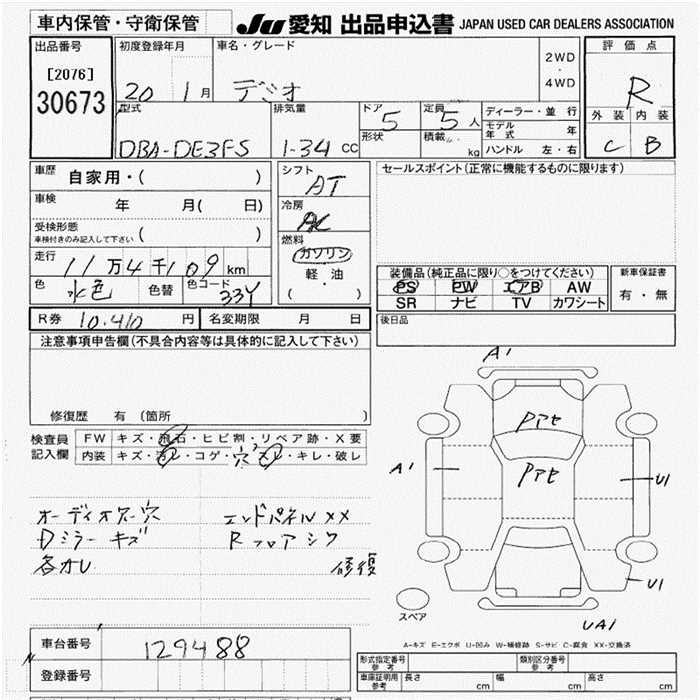 車内保管・守衛保管
JU 愛知 出品申込書 JAPAN USED CAR DEALERS ASSOCIATION
出品番号
[2076]
30673
初度登録年月
20 1月
車名・グレード
デミオ
2WD
・
4WD
評価点
R
外装 内装
C B
型式
DBA-DE3FS
排気量
1-34 CC
ドア
5
形状
定員
5人
積載
kg
ディーラー・並行
モデル年式 年
ハンドル 左・右
車歴 自家用・( )
車検 年 月( 日)
受検形態
車検付きのみ記入して下さい ( )
走行
11万4千109km
色
水色
色替
色コード
33Y
シフト
AT
冷房
AC
燃料
ガソリン
軽・油
( ・ )
セールスポイント(正常に機能するものに限ります)
装備品(純正品に限り○をつけてください)
PS PW エアB AW
SR ナビ TV カワシート
新車保証書
有・無
R券 10.410 円
名変期限 月 日
後日品
注意事項申告欄(不具合内容等は具体的に記入して下さい)
修復歴 有(箇所 )
検査員記入欄
FW キズ・飛石・ヒビ割・リペア跡・X要
内装 キズ・汚レ・コゲ・穴・スレ・キレ・破レ
オーディオカバー穴
Dミラー キズ
各オレ
エンドパネルXX
Rフロアシワ
修復
A1
Pアセ
Pアセ
A1
U1
U1
UA1
スペア
A-キズ E-エクボ U-凹み W-補修跡 S-サビ C-腐食 XX-交換済
車台番号 129488
登録番号
形式指定番号 参考
類別区分番号 参考
車庫証明用 参考
長さ cm
幅 cm
高さ cm